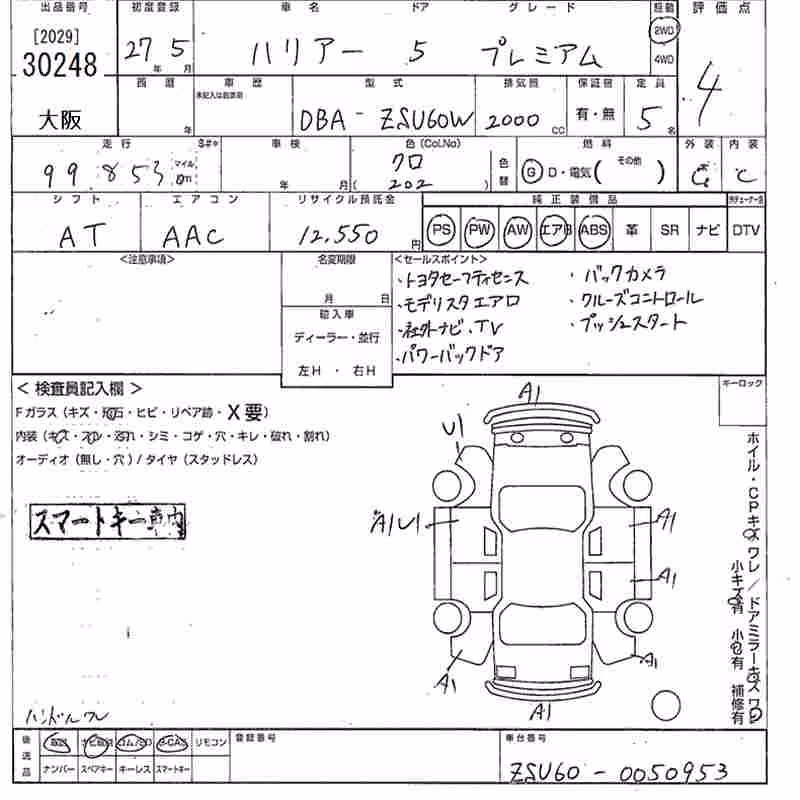 出品番号 初度登録 車名 ドア グレード 駆動 評価点
[2029]
30248 27年 5月 ハリアー 5 プレミアム 2WD 4WD 4
大阪 西暦 年 車歴 未記入は自家用 型式 排気量 保証書 定員
DBA - ZSU60W 2000 CC 有・無 5名
走行 S#* 車検 色(Col.No) 色替 燃料 外装 内装
99.853 マイル km 年 月 クロ 202 G D・電気( その他 ) C
シフト エアコン リサイクル預託金 純正装備品
AT AAC 12,550円 PS PW AW エアB ABS 革 SR ナビ DTV
<注意事項> 名変期限 <セールスポイント>
月 日
・トヨタセーフティセンス ・バックカメラ
輸入車 ・モデリスタエアロ ・クルーズコントロール
ディーラー・並行 ・社外ナビ.TV ・プッシュスタート
左H ・ 右H ・パワーバックドア
< 検査員記入欄 > キーロック
Fガラス(キズ・飛石・ヒビ・リペア跡・X要)
内装(キズ・スレ・汚れ・シミ・コゲ・穴・キレ・破れ・割れ)
オーディオ(無し・穴)/タイヤ(スタッドレス)
スマートキー車内
A1
U1
A1U1 A1
A1
A1 A1
A1
ホイル・CPキズ ワレ / ドアミラーキズ ワレ
小キズ有 小凹有 補修有
ハンドルワレ
後送品 取説 ナビ取説 ロム/SD B-CAS リモコン 登録番号 車台番号
ナンバー スペアキー キーレス スマートキー ZSU60 - 0050953